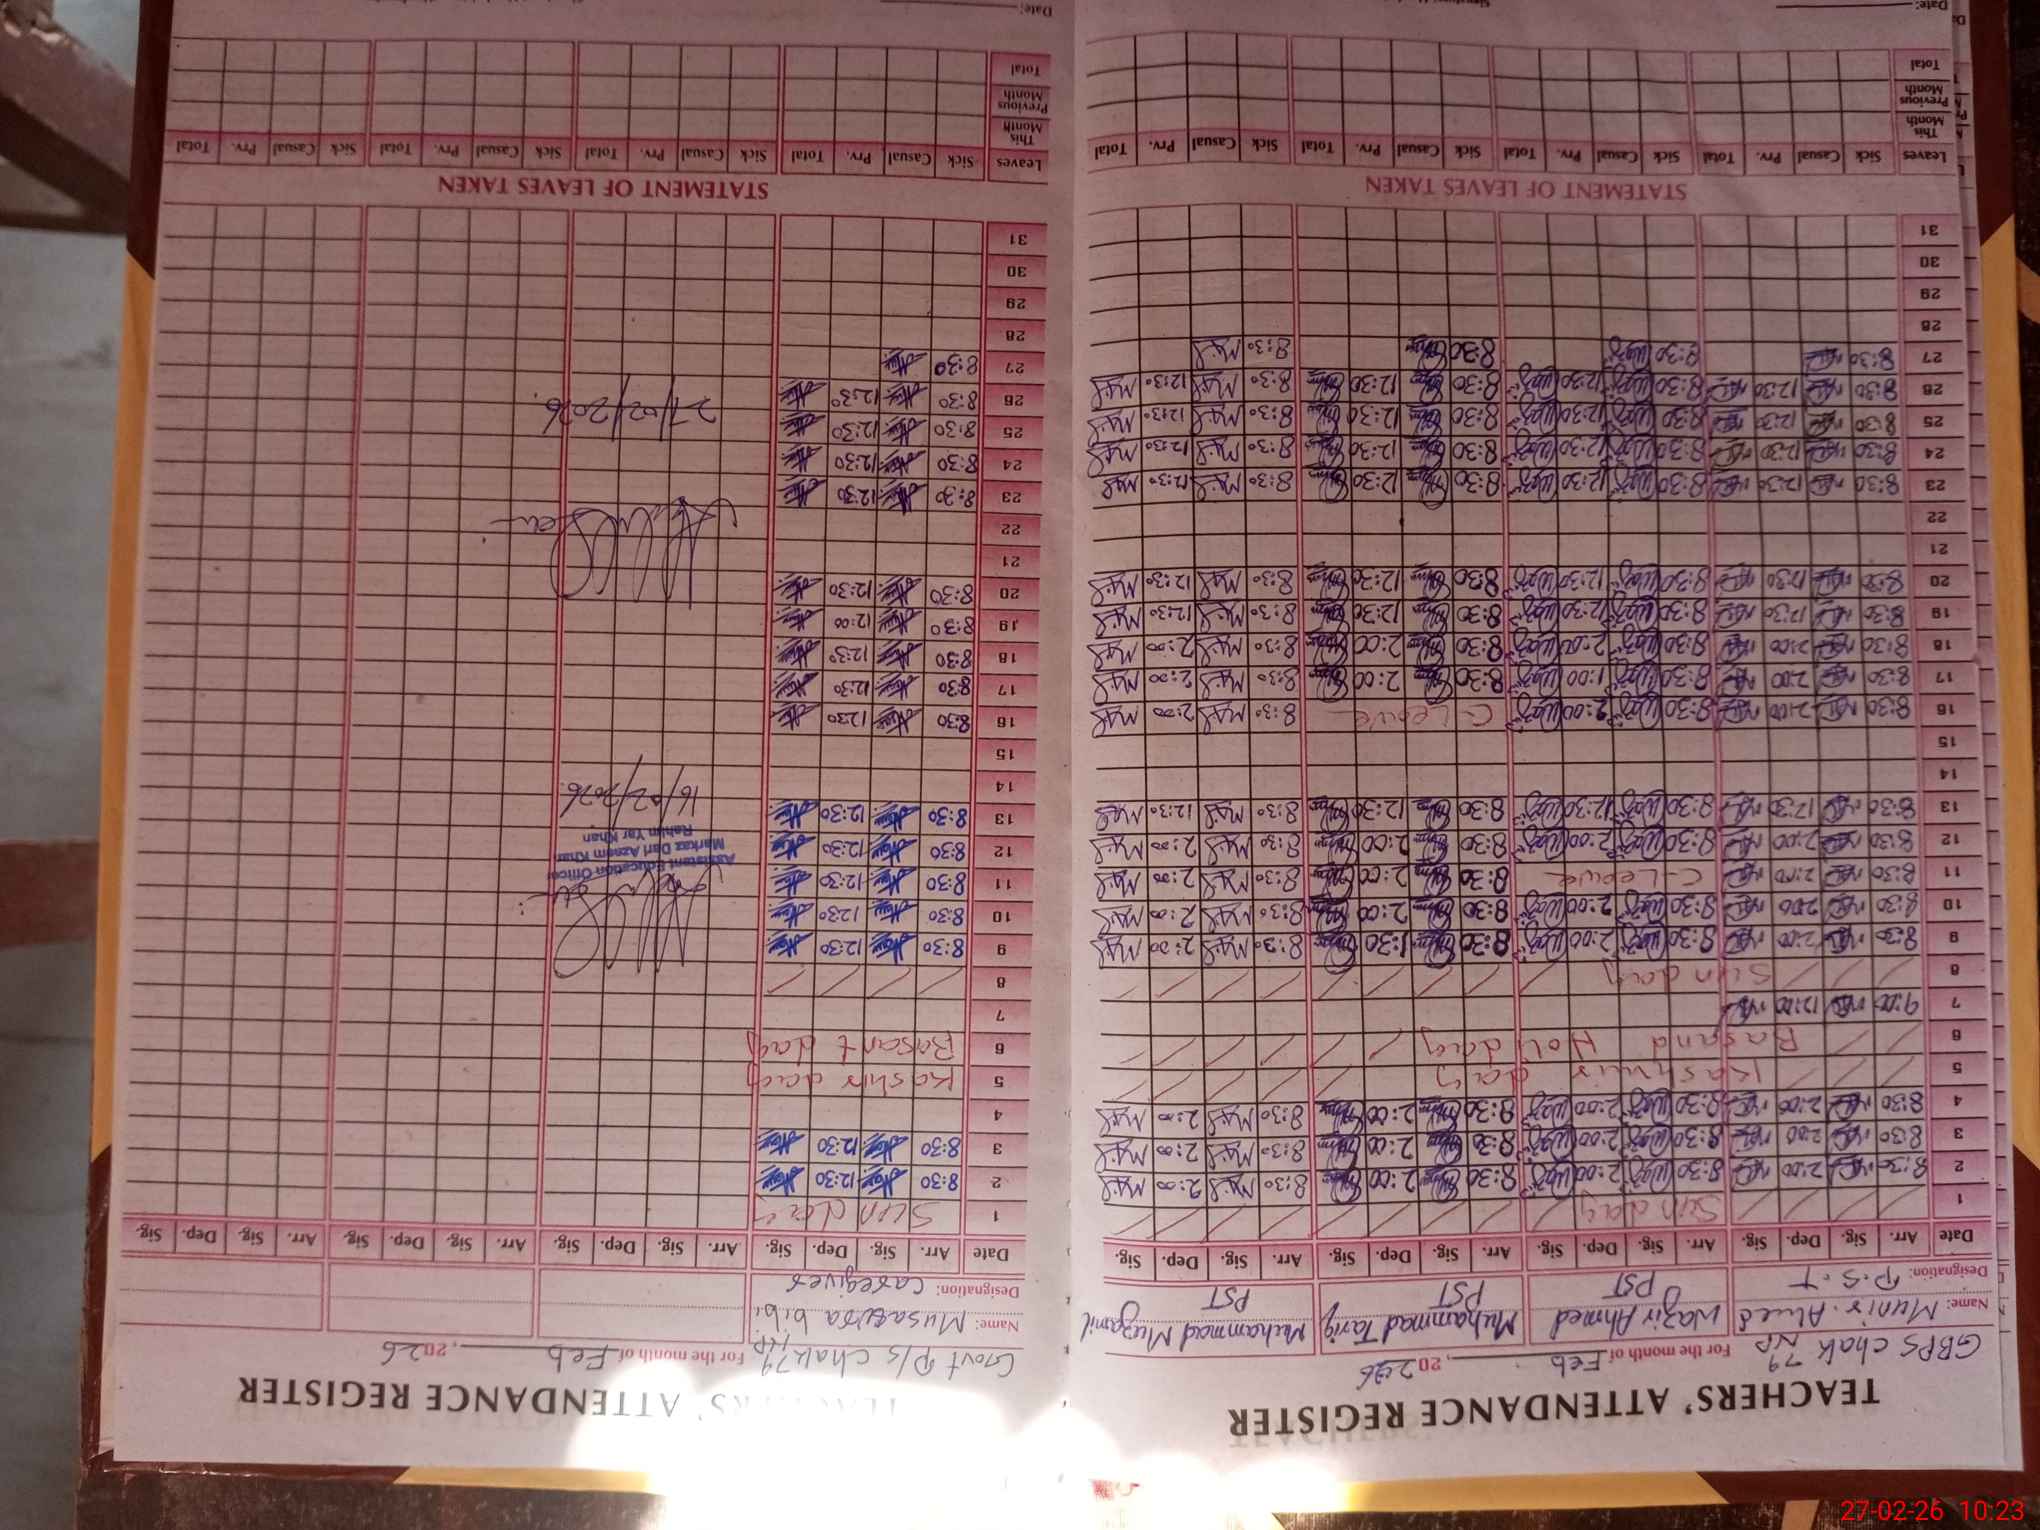 TEACHERS' ATTENDANCE REGISTER
GBPS chak 79 NP For the month of Feb, 2026
Name: Munir Ahmed Wazir Ahmed Muhammad Tariq Muhammad Muzamil
Designation: P.S.T PST PST PST
Date Arr. Sig. Dep. Sig. Arr. Sig. Dep. Sig. Arr. Sig. Dep. Sig. Arr. Sig. Dep. Sig.
1 Sunday
2 8:30 2:00 8:30 2:00 8:30 2:00 8:30 2:00
3 8:30 2:00 8:30 2:00 8:30 2:00 8:30 2:00
4 8:30 2:00 8:30 2:00 8:30 2:00 8:30 2:00
5 Kashmir day
6 Basand Holiday
7 9:00 12:00
8 Sunday
9 8:30 2:00 8:30 2:00 8:30 1:30 8:30 2:00
10 8:30 2:00 8:30 2:00 8:30 2:00 8:30 2:00
11 8:30 2:00 C-Leave 8:30 2:00 8:30 2:00
12 8:30 2:00 8:30 2:00 8:30 2:00 8:30 2:00
13 8:30 12:30 8:30 12:30 8:30 12:30 8:30 12:30
14
15
16 8:30 2:00 8:30 2:00 C-Leave 8:30 2:00
17 8:30 2:00 8:30 1:00 8:30 2:00 8:30 2:00
18 8:30 2:00 8:30 2:00 8:30 2:00 8:30 2:00
19 8:30 12:30 8:30 12:30 8:30 12:30 8:30 12:30
20 8:30 12:30 8:30 12:30 8:30 12:30 8:30 12:30
21
22
23 8:30 12:30 8:30 12:30 8:30 12:30 8:30 12:30
24 8:30 12:30 8:30 12:30 8:30 12:30 8:30 12:30
25 8:30 12:30 8:30 12:30 8:30 12:30 8:30 12:30
26 8:30 12:30 8:30 12:30 8:30 12:30 8:30 12:30
27 8:30 8:30 8:30 8:30
28
29
30
31
STATEMENT OF LEAVES TAKEN
Leaves Sick Casual Prv. Total Sick Casual Prv. Total Sick Casual Prv. Total Sick Casual Prv. Total
This Month
Previous Month
Total
Date:
TEACHERS' ATTENDANCE REGISTER
Govt P/S chak 79 NP For the month of Feb, 2026
Name: Musawra bibi
Designation: Caregiver
Date Arr. Sig. Dep. Sig. Arr. Sig. Dep. Sig. Arr. Sig. Dep. Sig. Arr. Sig. Dep. Sig.
1 Sunday
2 8:30 12:30
3 8:30 12:30
4
5 Kashir day
6 Basant day
7
8
9 8:30 12:30
10 8:30 12:30
11 8:30 12:30
12 8:30 12:30
13 8:30 12:30
14
15
16 8:30 12:30
17 8:30 12:30
18 8:30 12:30
19 8:30 12:00
20 8:30 12:30
21
22
23 8:30 12:30
24 8:30 12:30
25 8:30 12:30
26 8:30 12:30
27 8:30
28
29
30
31
Assistant Education Officer
Markaz Dari Azeem Khan
Rahim Yar Khan
16/02/2026
27/02/2026
STATEMENT OF LEAVES TAKEN
Leaves Sick Casual Prv. Total Sick Casual Prv. Total Sick Casual Prv. Total Sick Casual Prv. Total
This Month
Previous Month
Total
Date:
27-02-26 10:23